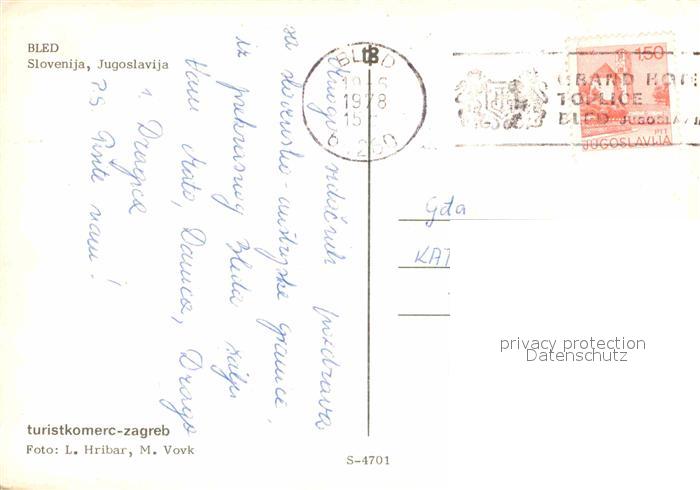 BLED
Slovenija, Jugoslavija
Mnogo srdačnih pozdrava
sa slovensko-austrijske granice,
iz prekrasnog Bleda šalju
Vam Mato, Danica, Drago
i Dragica
P.S. Pišite nam!
turistkomerc-zagreb
Foto: L. Hribar, M. Vovk
S-4701
BLED
1978
15
260
GRAND HOTE
TOPLICE
BLED JUGOSLAVIJA
1,50
PTT
JUGOSLAVIJA
Gđa
KAT
privacy protection
Datenschutz